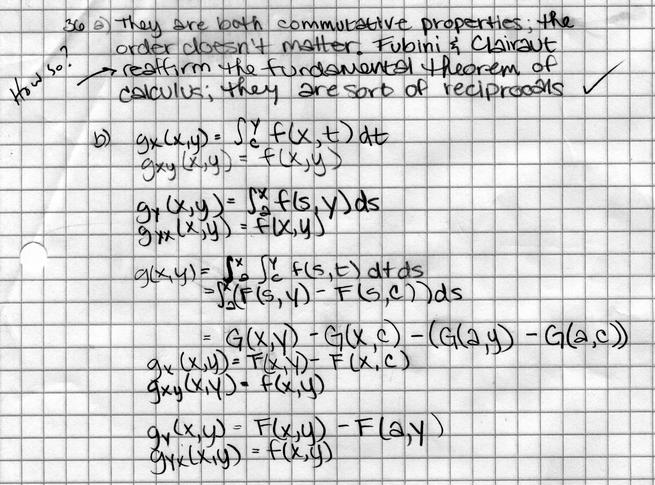 36 a) They are both commutative properties; the
order doesn't matter. Fubini & Clairaut
How so? → reaffirm the fundamental theorem of
calculus; they are sort of reciprocals ✓
b) gx(x,y) = ∫c^y f(x,t) dt
gxy(x,y) = f(x,y)
gy(x,y) = ∫a^x f(s,y) ds
gyx(x,y) = f(x,y)
g(x,y) = ∫a^x ∫c^y f(s,t) dt ds
= ∫a^x (F(s,y) - F(s,c)) ds
= G(x,y) - G(x,c) - (G(a,y) - G(a,c))
gx(x,y) = F(x,y) - F(x,c)
gxy(x,y) = f(x,y)
gy(x,y) = F(x,y) - F(a,y)
gyx(x,y) = f(x,y)